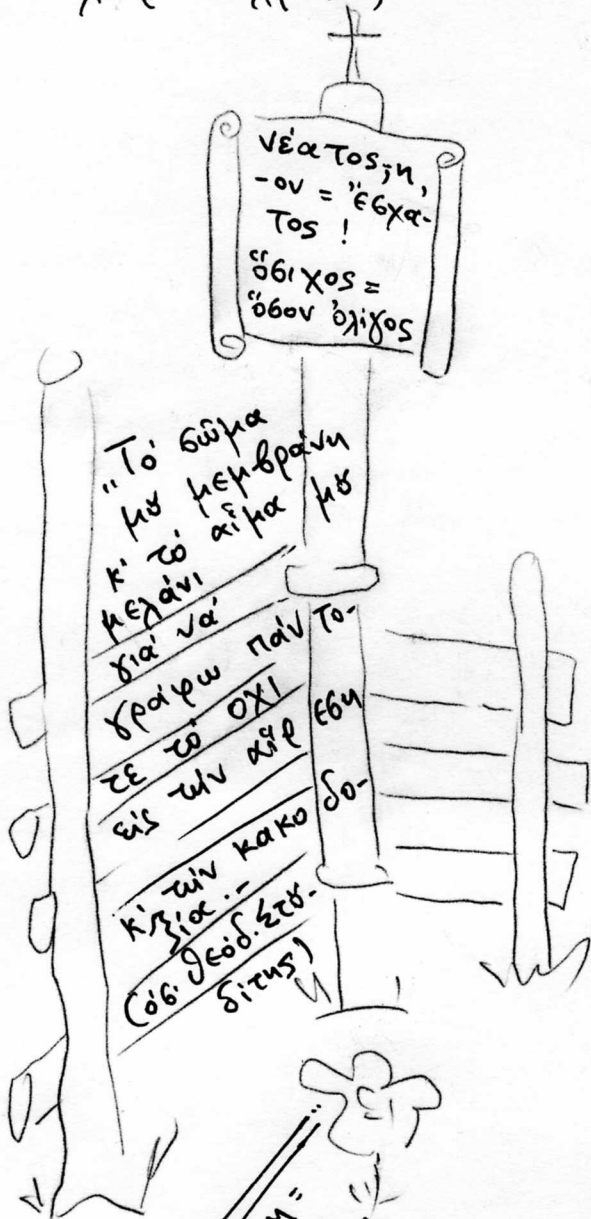 νέατος, η,
-ον = ἔσχα-
τος !
ὅσιχος =
ὅσον ὀλίγος
"Τό σῶμα
μȣ μεμβράνη
κ' τό αἷμα μȣ
μελάνι
γιά νά
γράψω πάντο-
τε τό ΟΧΙ
εἰς τήν αἵρεση
κ' τήν κακοδο-
ξία.-
(ὁσ. Θεόδ. Στȣ-
δίτης)